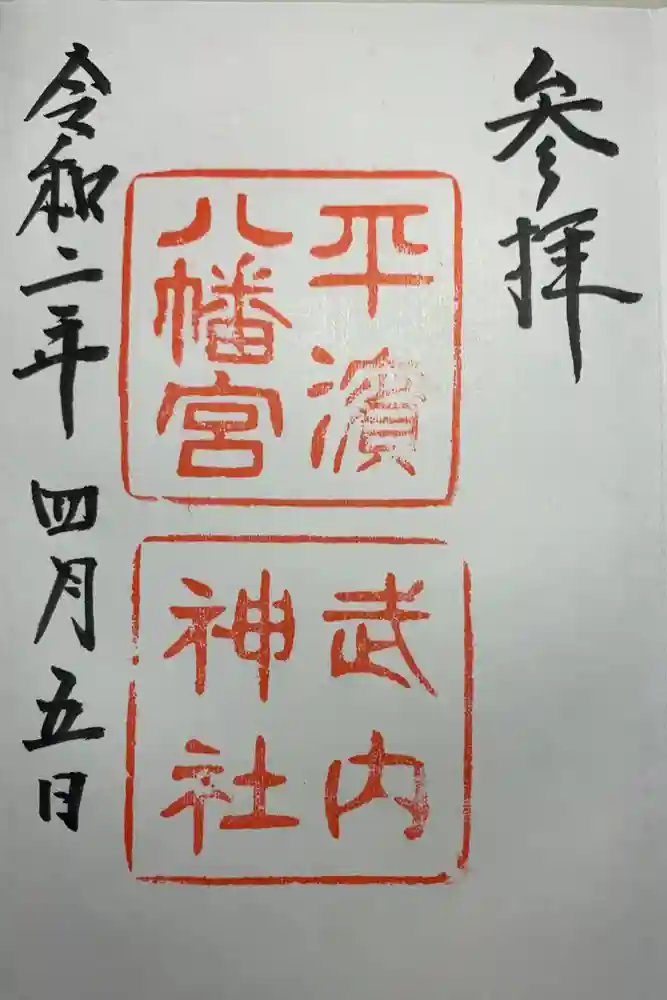 参拝
平濱
八幡宮
武内
神社
令和二年四月五日